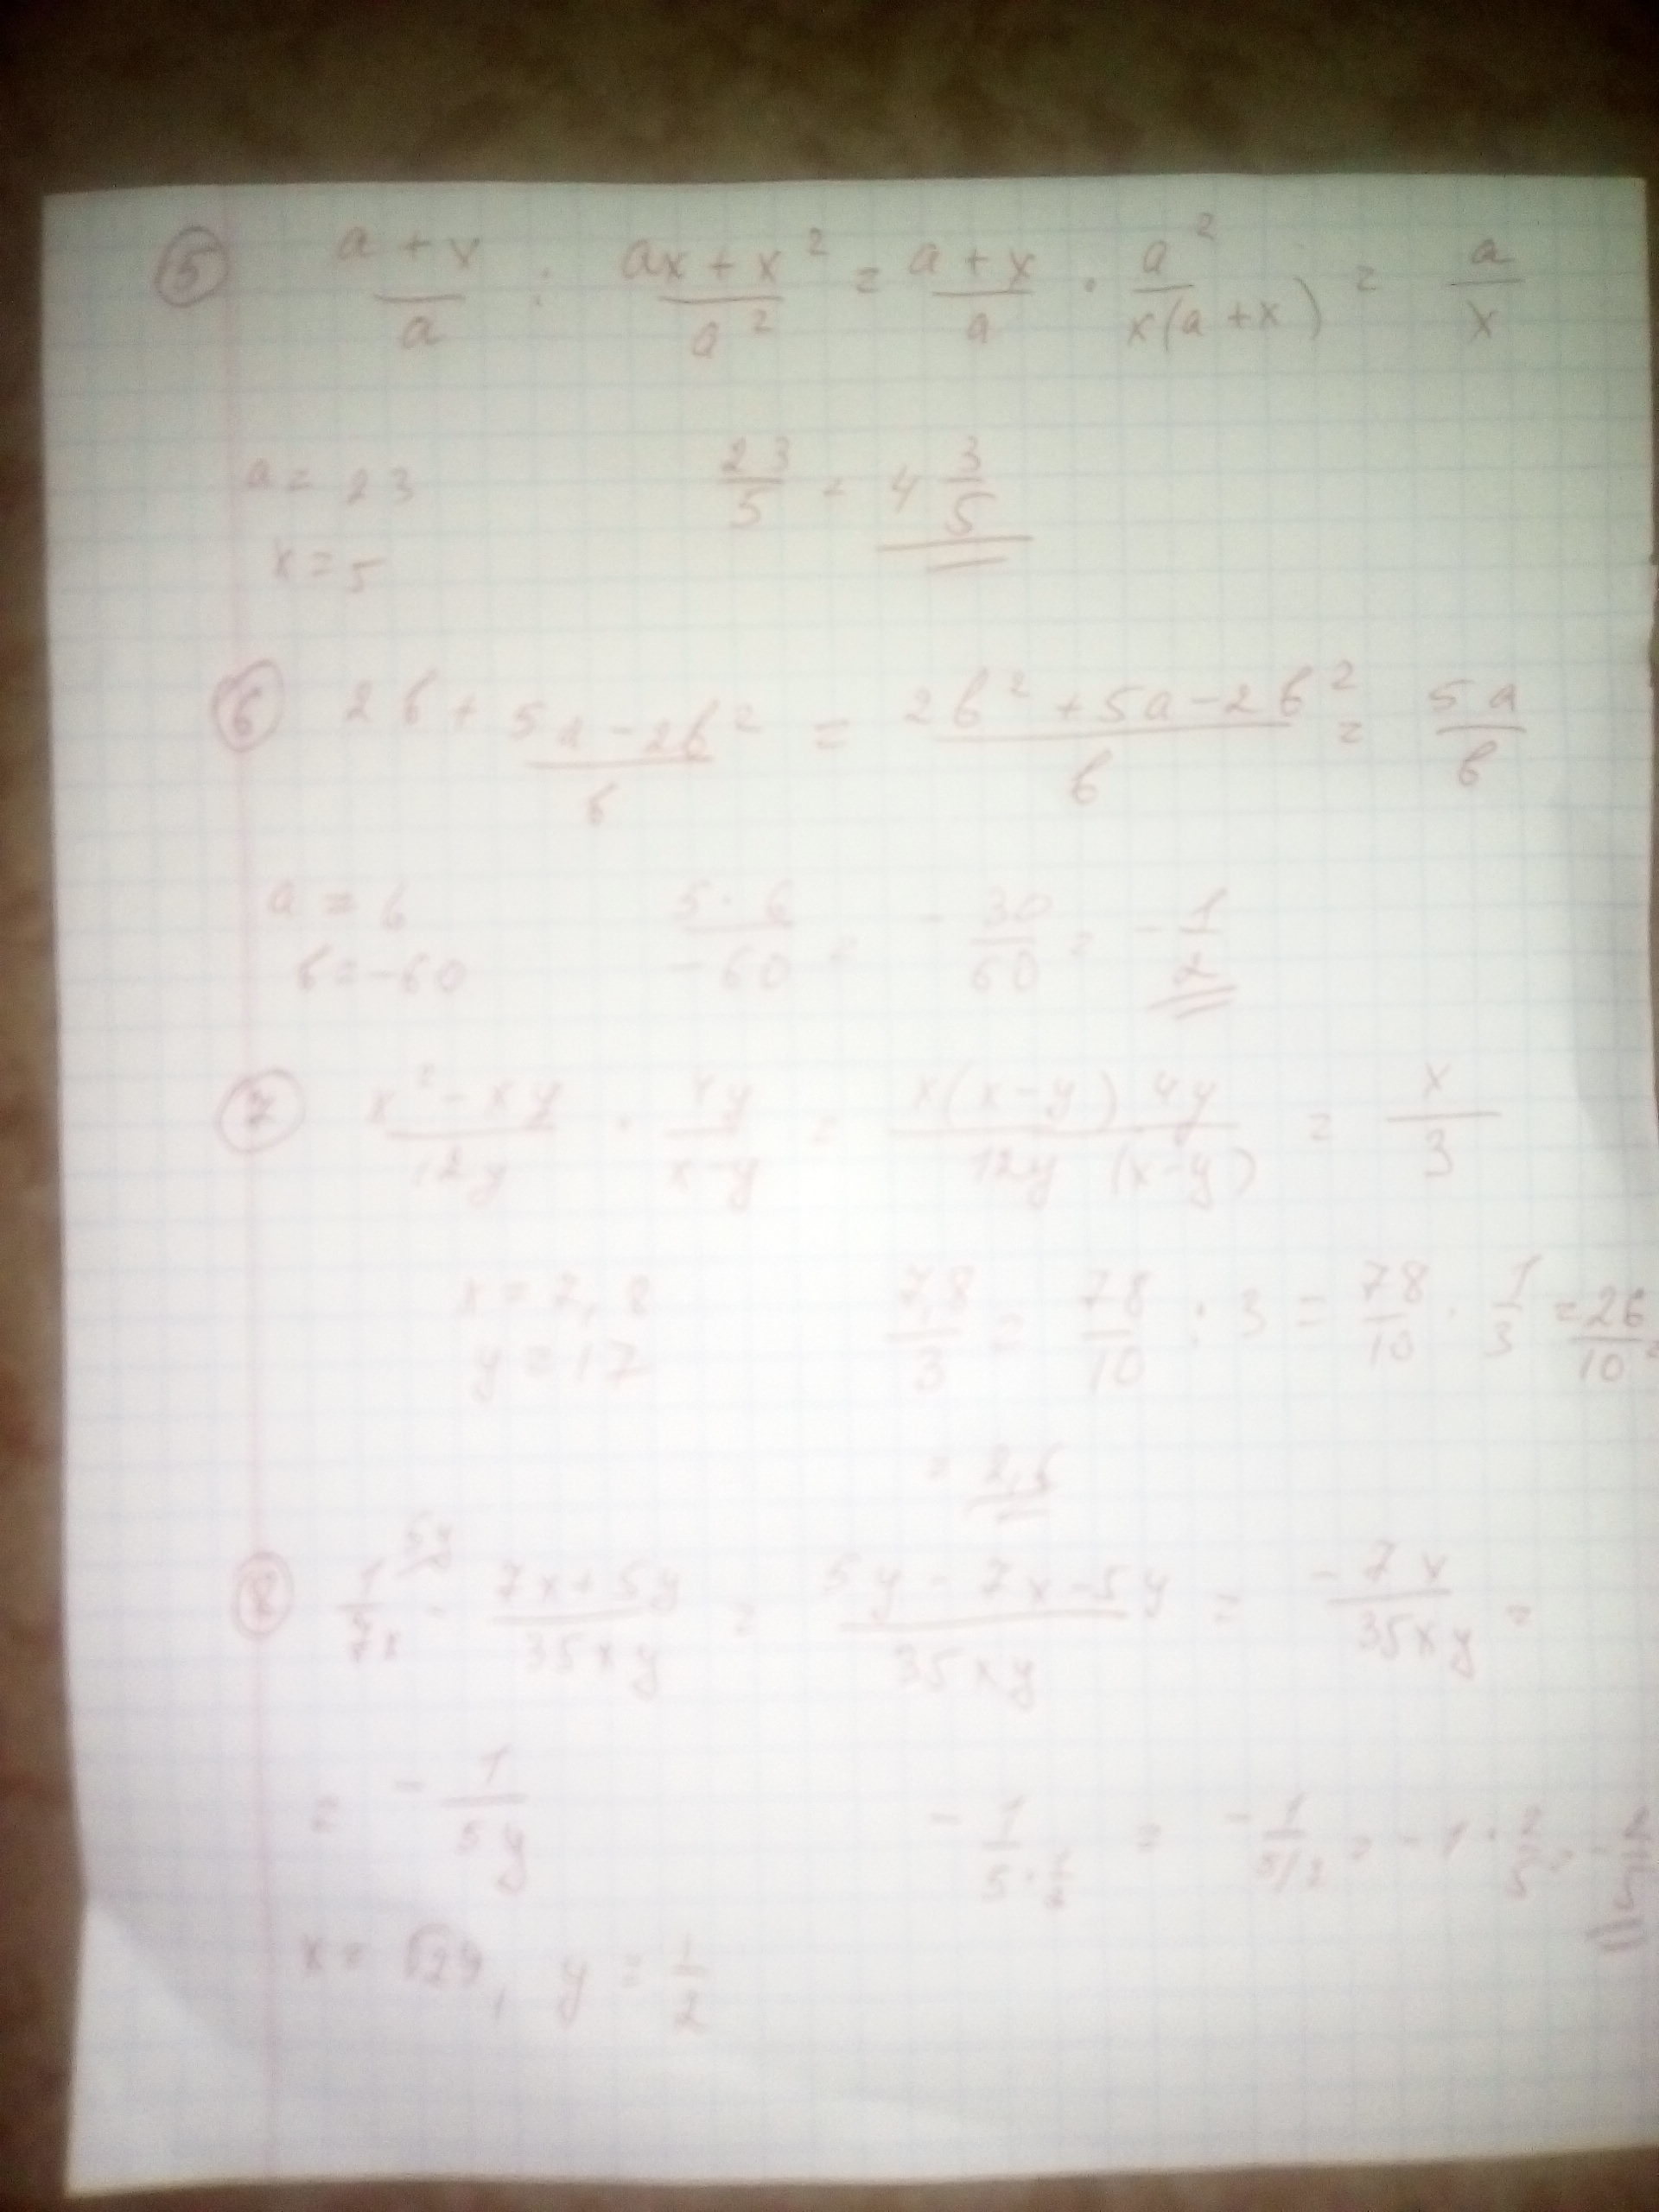 5 (a + x)/a : (ax + x²)/a² = (a + x)/a · a²/(x(a + x)) = a/x
a = 23 23/5 = 4 3/5
x = 5
6 2b + (5a - 2b²)/b = (2b² + 5a - 2b²)/b = 5a/b
a = 6 (5 · 6)/(-60) = -30/60 = -1/2
b = -60
7 (x² - xy)/12y · 4y/(x-y) = (x(x-y) 4y)/(12y (x-y)) = x/3
x = 7,8 7,8/3 = 78/10 : 3 = 78/10 · 1/3 = 26/10 =
y = 17
= 2,6
8 1/7x 5y - (7x + 5y)/35xy = (5y - 7x - 5y)/35xy = -7x/35xy =
= -1/5y -1/(5 · 1/2) = -1/(5/2) = -1 · 2/5 = -2/5
x = √29, y = 1/2